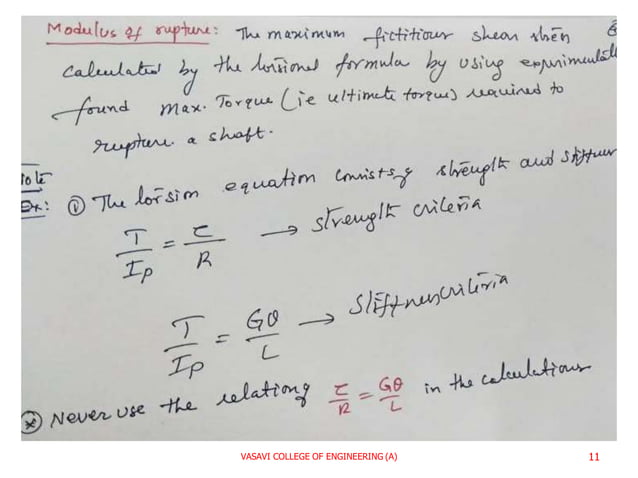 Modulus of rupture: The maximum fictitious shear stress
calculated by the torsional formula by using experimentally
found max. Torque (ie ultimate torque) required to
rupture a shaft.
Note
Ex: ① The torsion equation consists of strength and stiffness
T/Ip = τ/R → strength criteria
T/Ip = Gθ/L → stiffness criteria
* Never use the relation of τ/R = Gθ/L in the calculations
VASAVI COLLEGE OF ENGINEERING (A) 11